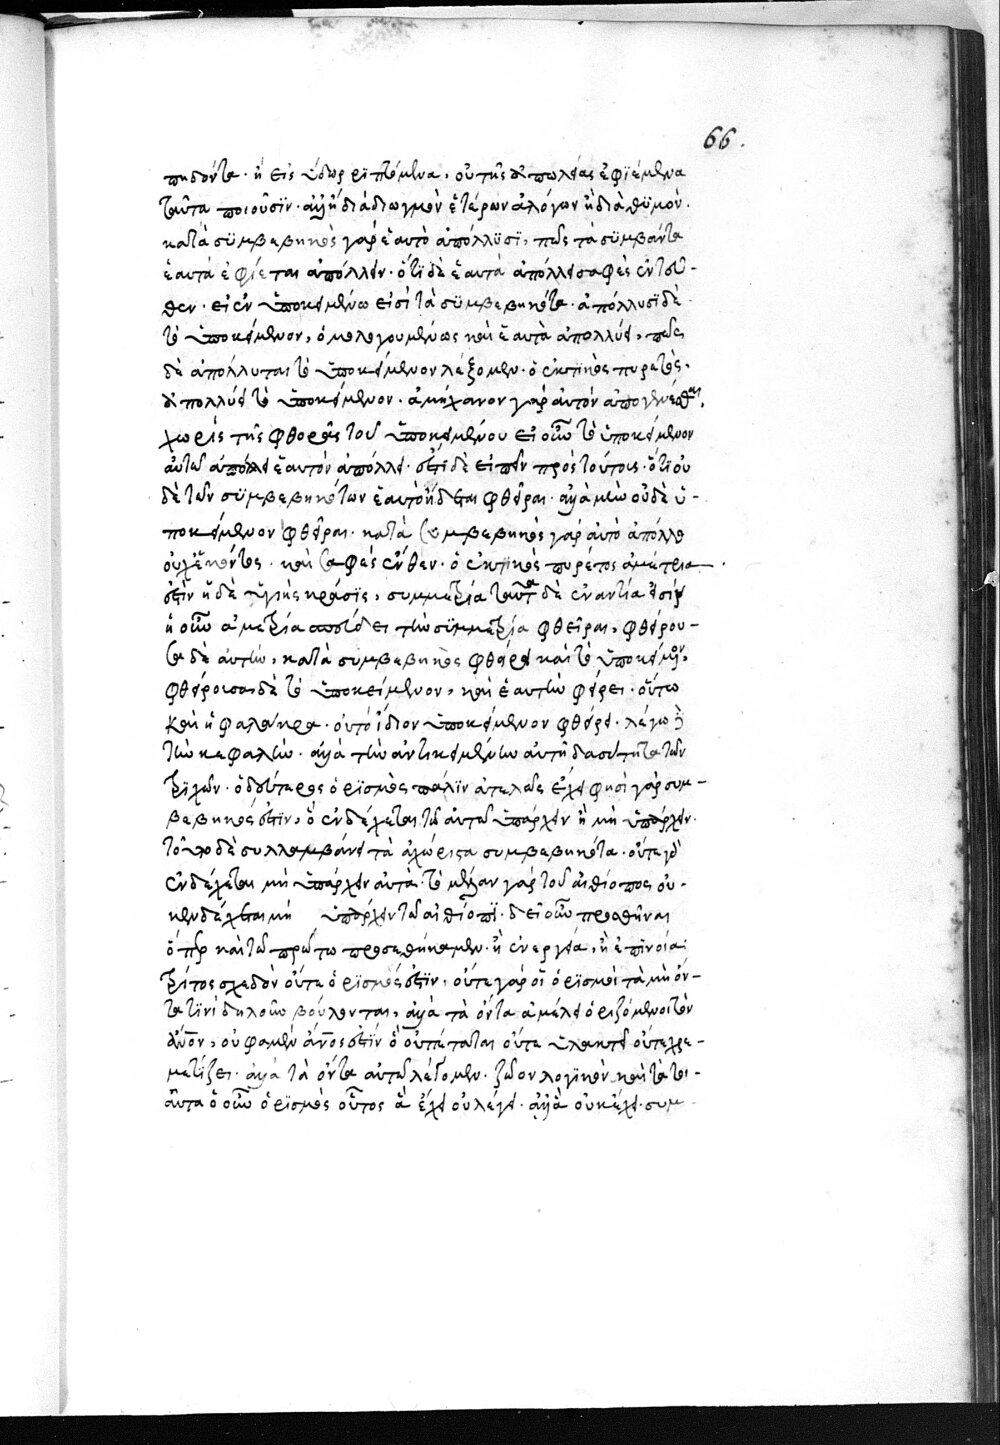 66.
πηδόντα· ἢ εἰς ὕδωρ ῥϊπτόμενα, οὐ τῆς ἀπωλείας ἐφϊέμενα
ταῦτα ποιοῦσϊν· ἀλλ' ἢ διὰ διωγμὸν ἑτέρων ἀλόγων ἢ διὰ θϋμόν·
κατὰ σϋμβεβηκὸς γὰρ ἑαυτὸ ἀπόλλϋσϊ, πῶς τὰ σϋμβάντα
ἑαυτὰ ἐφίεται ἀπόλλειν· ὅτϊ δὲ ἑαυτὰ ἀπόλλει σαφὲς ἐντεῦ-
θεν· εἰ ἐν ὑποκειμένω εἰσὶ τὰ σϋμβεβηκότα· ἀπόλλυσϊ δὲ
τὸ ὑποκείμενον, ὁμολογουμένως καὶ ἑαυτὰ ἀπολλύει, πῶς
δὲ ἀπόλλυται τὸ ὑποκείμενον λέξομεν· ὁ ἑκτϊκὸς πυρετὸς,
ἀπολλύει τὸ ὑποκείμενον· ἀμήχανον γὰρ αὐτὸν ἀπογενέσθαι,
χωρὶς τῆς φθορᾶς τοῦ ὑποκειμένου εἰ οὖν τὸ ὑποκείμενον
αὐτοῦ ἀπόλλει ἑαυτὸν ἀπόλλει· ἔστϊ δὲ εἰπεῖν πρὸς τούτοις· ὅτϊ οὐ
δὲ τῶν σϋμβεβηκότων ἑαυτὸ ἥδεται φθεῖραι· ἀλλὰ μὴν οὐδὲ ὑ-
ποκείμενον φθεῖραι· κατὰ συμβεβηκὸς γὰρ αὐτὸ ἀπόλλει
οὐχ ἑκόντος· καὶ σαφὲς ἔνθεν· ὁ ἑκτικὸς πυρετὸς ἀμετρία
ἐστϊν ἡ δὲ ὑγιὴς κράσϊς, συμμετρία ταῦτα δὲ ἐναντία εἰσὶν
ἡ οὖν ἀμετρία σπεύδει τὴν σϋμμετρία φθεῖραι, φθείρου-
σα δὲ αὐτὴν, κατὰ συμβεβηκὸς φθείρει καὶ τὸ ὑποκείμενον,
φθείρουσα δὲ τὸ ὑποκείμενον, καὶ ἑαυτὴν φθείρει· οὕτω
καὶ ἡ φαλάκρα· οὐ τὸ ἴδιον ὑποκείμενον φθείρει· λέγω δὴ
τὴν κεφαλὴν· ἀλλὰ τὴν ἀντικειμένην αὐτῆ δασύτητα τῶν
τρϊχῶν· ὁ δεύτερος ὁρϊσμὸς πάλϊν ἀτελῶς ἔχει φησὶ γὰρ συμ-
βεβηκός ἐστϊν, ὃ ἐνδέχεται τῶ αὐτῶ ὑπάρχειν ἢ μὴ ὑπάρχειν·
τοῦτο δὲ συλλαμβάνει τὰ ἀχώριστα συμβεβηκότα· οὔτε γὰρ
ἐνδέχεται μὴ ὑπάρχειν αὐτὰ· τὸ μέλαν γὰρ τοῦ αἰθίοπος οὐ-
κ ἐνδέχεται μὴ ὑπάρχειν τῶ αἰθίοπϊ· δεῖ οὖν προσθῆναι
ὅπερ καὶ τῶ πρώτω προσεθήκαμεν· ἢ ἐνεργεία, ἢ ἐπϊνοία
τρίτος σχεδὸν οὔτε ὁρϊσμός ἐστϊν, οὔτε γὰρ οἱ ὁρϊσμοὶ τὰ μὴ ὄν-
τα τϊνὶ δηλοῦν βούλονται, ἀλλὰ τὰ ὄντα ἀμέλει ὁριζόμενοι τὸν
ἄνον, οὐ φαμὲν ἄνος ἐστϊν ὃ οὐ πέταται οὔτε ὑλακτεῖ οὔτε χρε-
μετίζει· ἀλλὰ τὰ ὄντα αὐτοῦ λέγομεν· ζῶον λογϊκὸν καὶ τὰ τοι-
αῦτα ὁ οὖν ὁρϊσμὸς οὗτος ἃ ἔχει οὐ λέγει· ἀλλὰ οὐκ ἔχει· συμ-